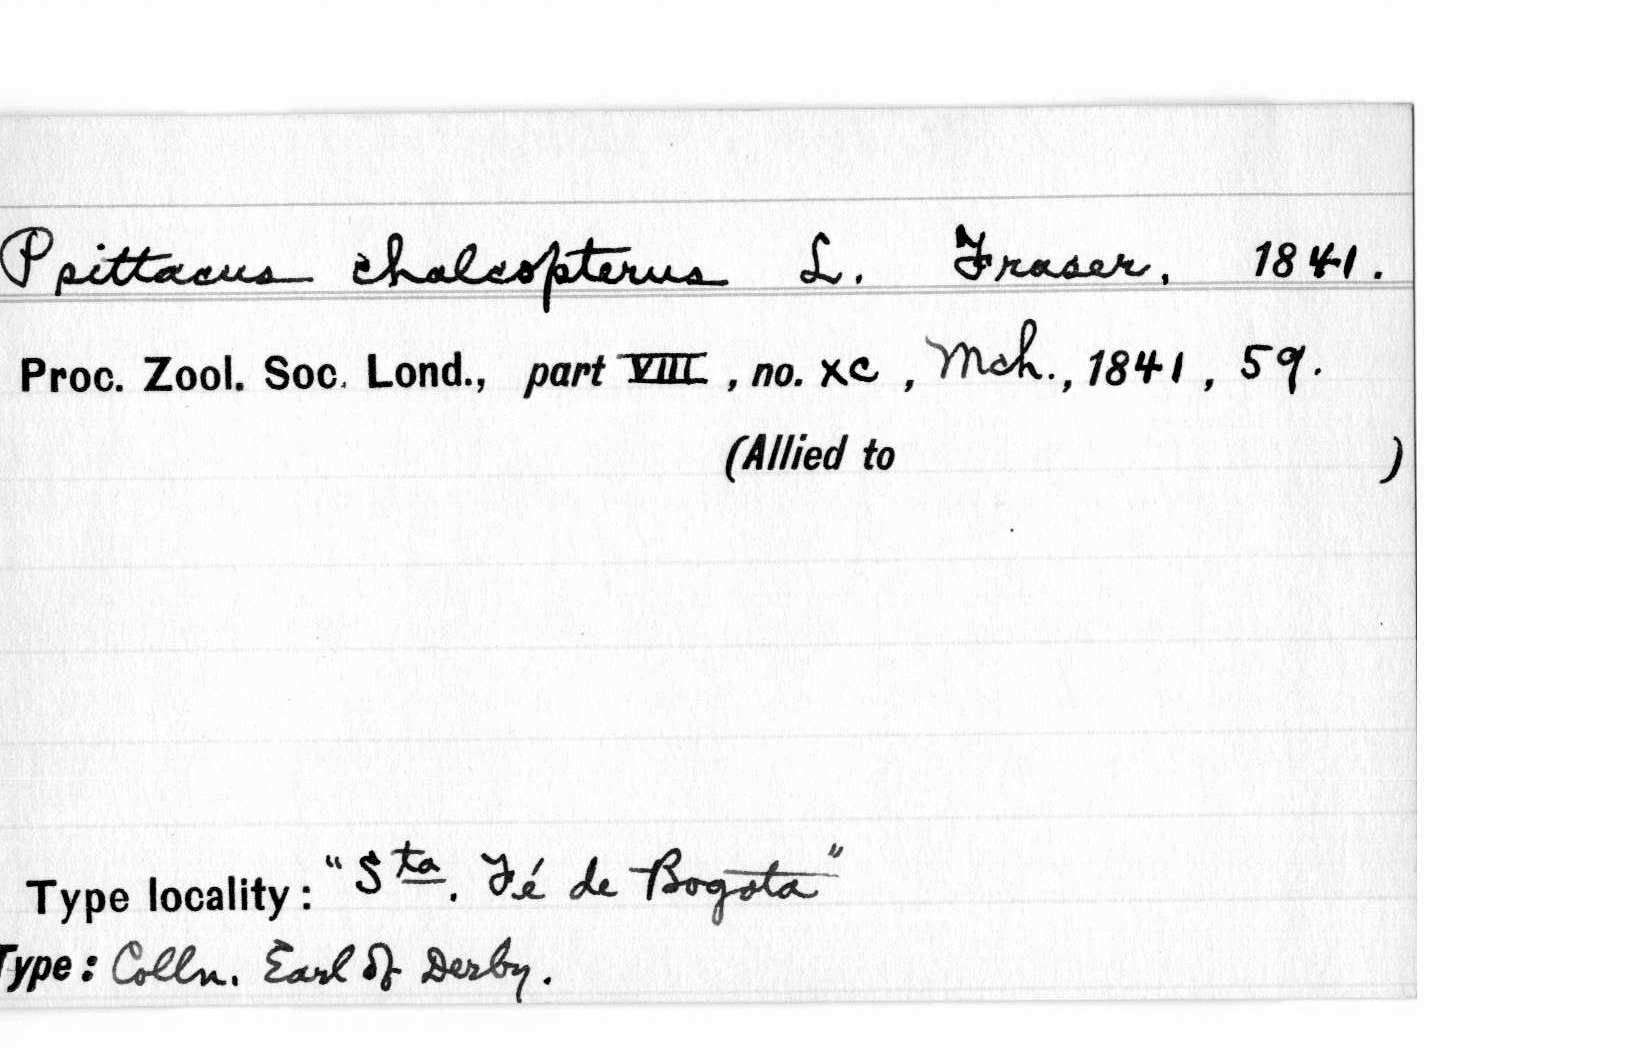 Psittacus chalcopterus L. Fraser, 1841.
Proc. Zool. Soc. Lond., part VIII, no. XC, Mch., 1841, 59.
(Allied to )
Type locality: "Sta. Fé de Bogota"
Type: Colln. Earl of Derby.